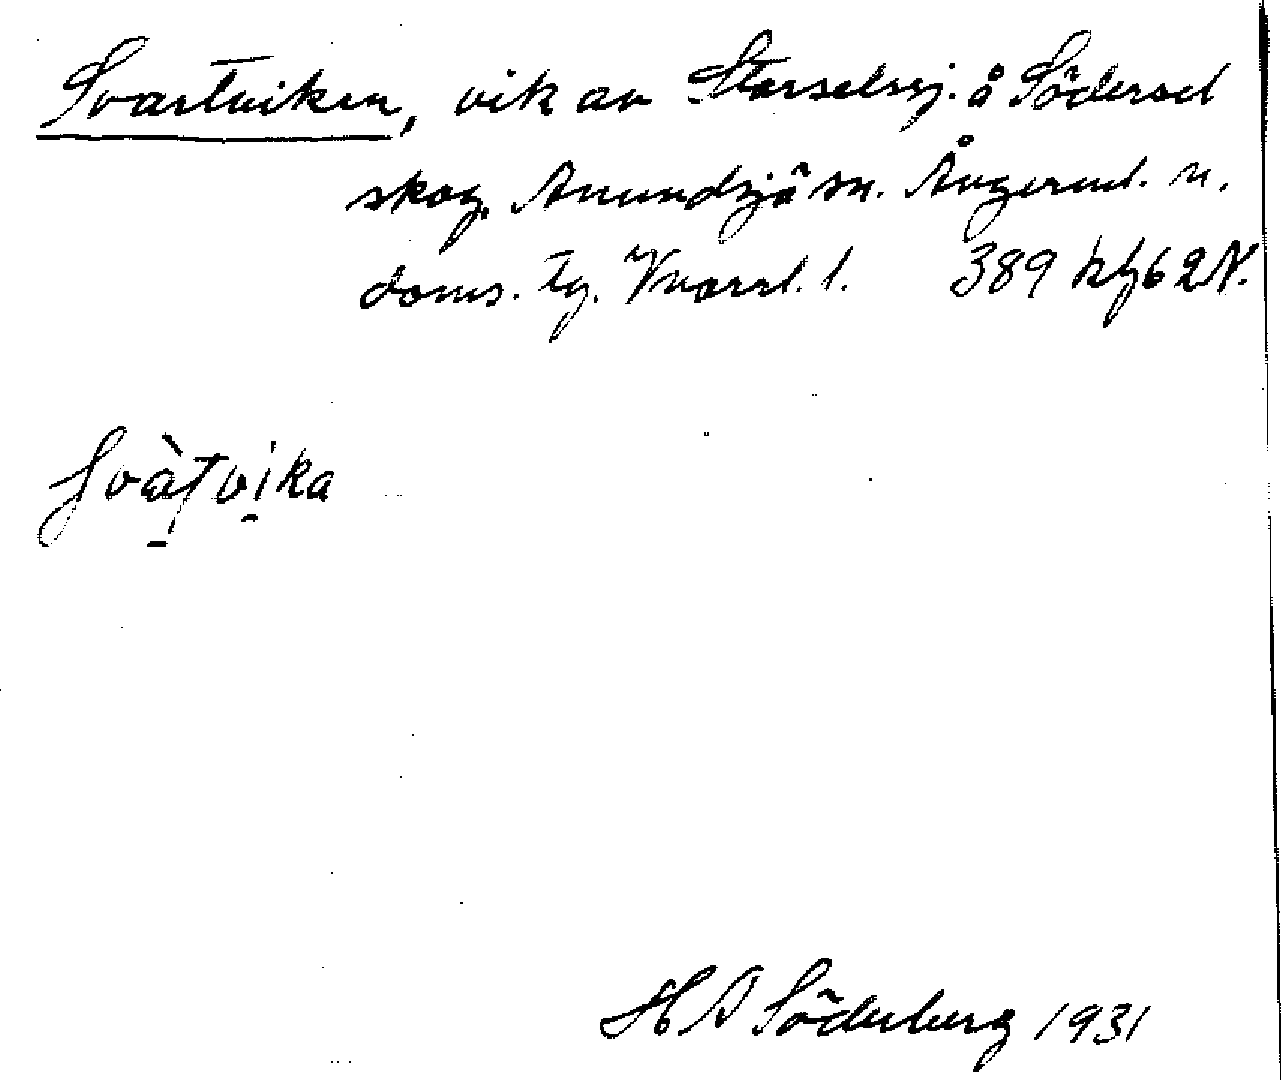 Svartviken, vik av Storselssj. å Södersel
skog, Anundsjö sn. Ångerml. n.
doms. tg. Vnorrl. l. 389 kbf 62 N.
Svàtvika
H A Söderberg 1931